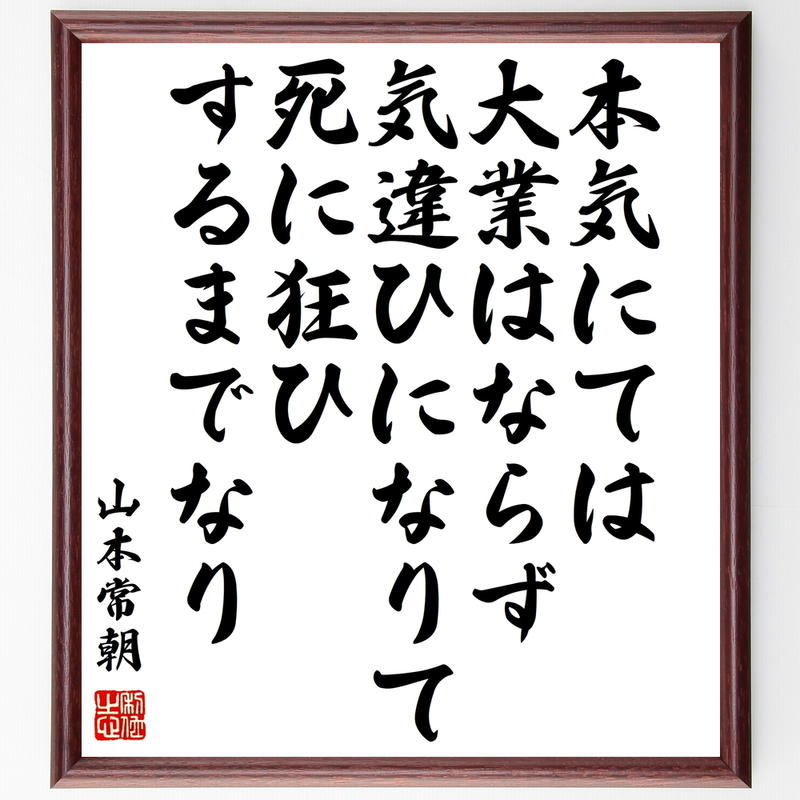 本気にては
大業はならず
気違ひになりて
死に狂ひ
するまでなり
山本常朝